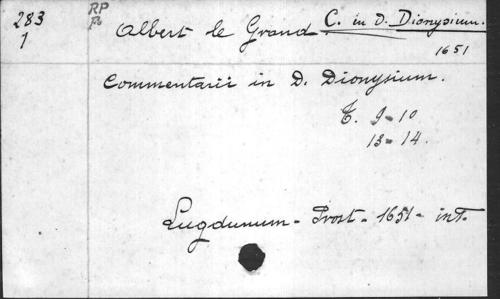 283
1
RP
Albert le Grand C. in D. Dionysium.
1651
Commentarii in D. Dionysium.
T. 9-10
13-14.
Lugdunum - Prost - 1651 - inf.